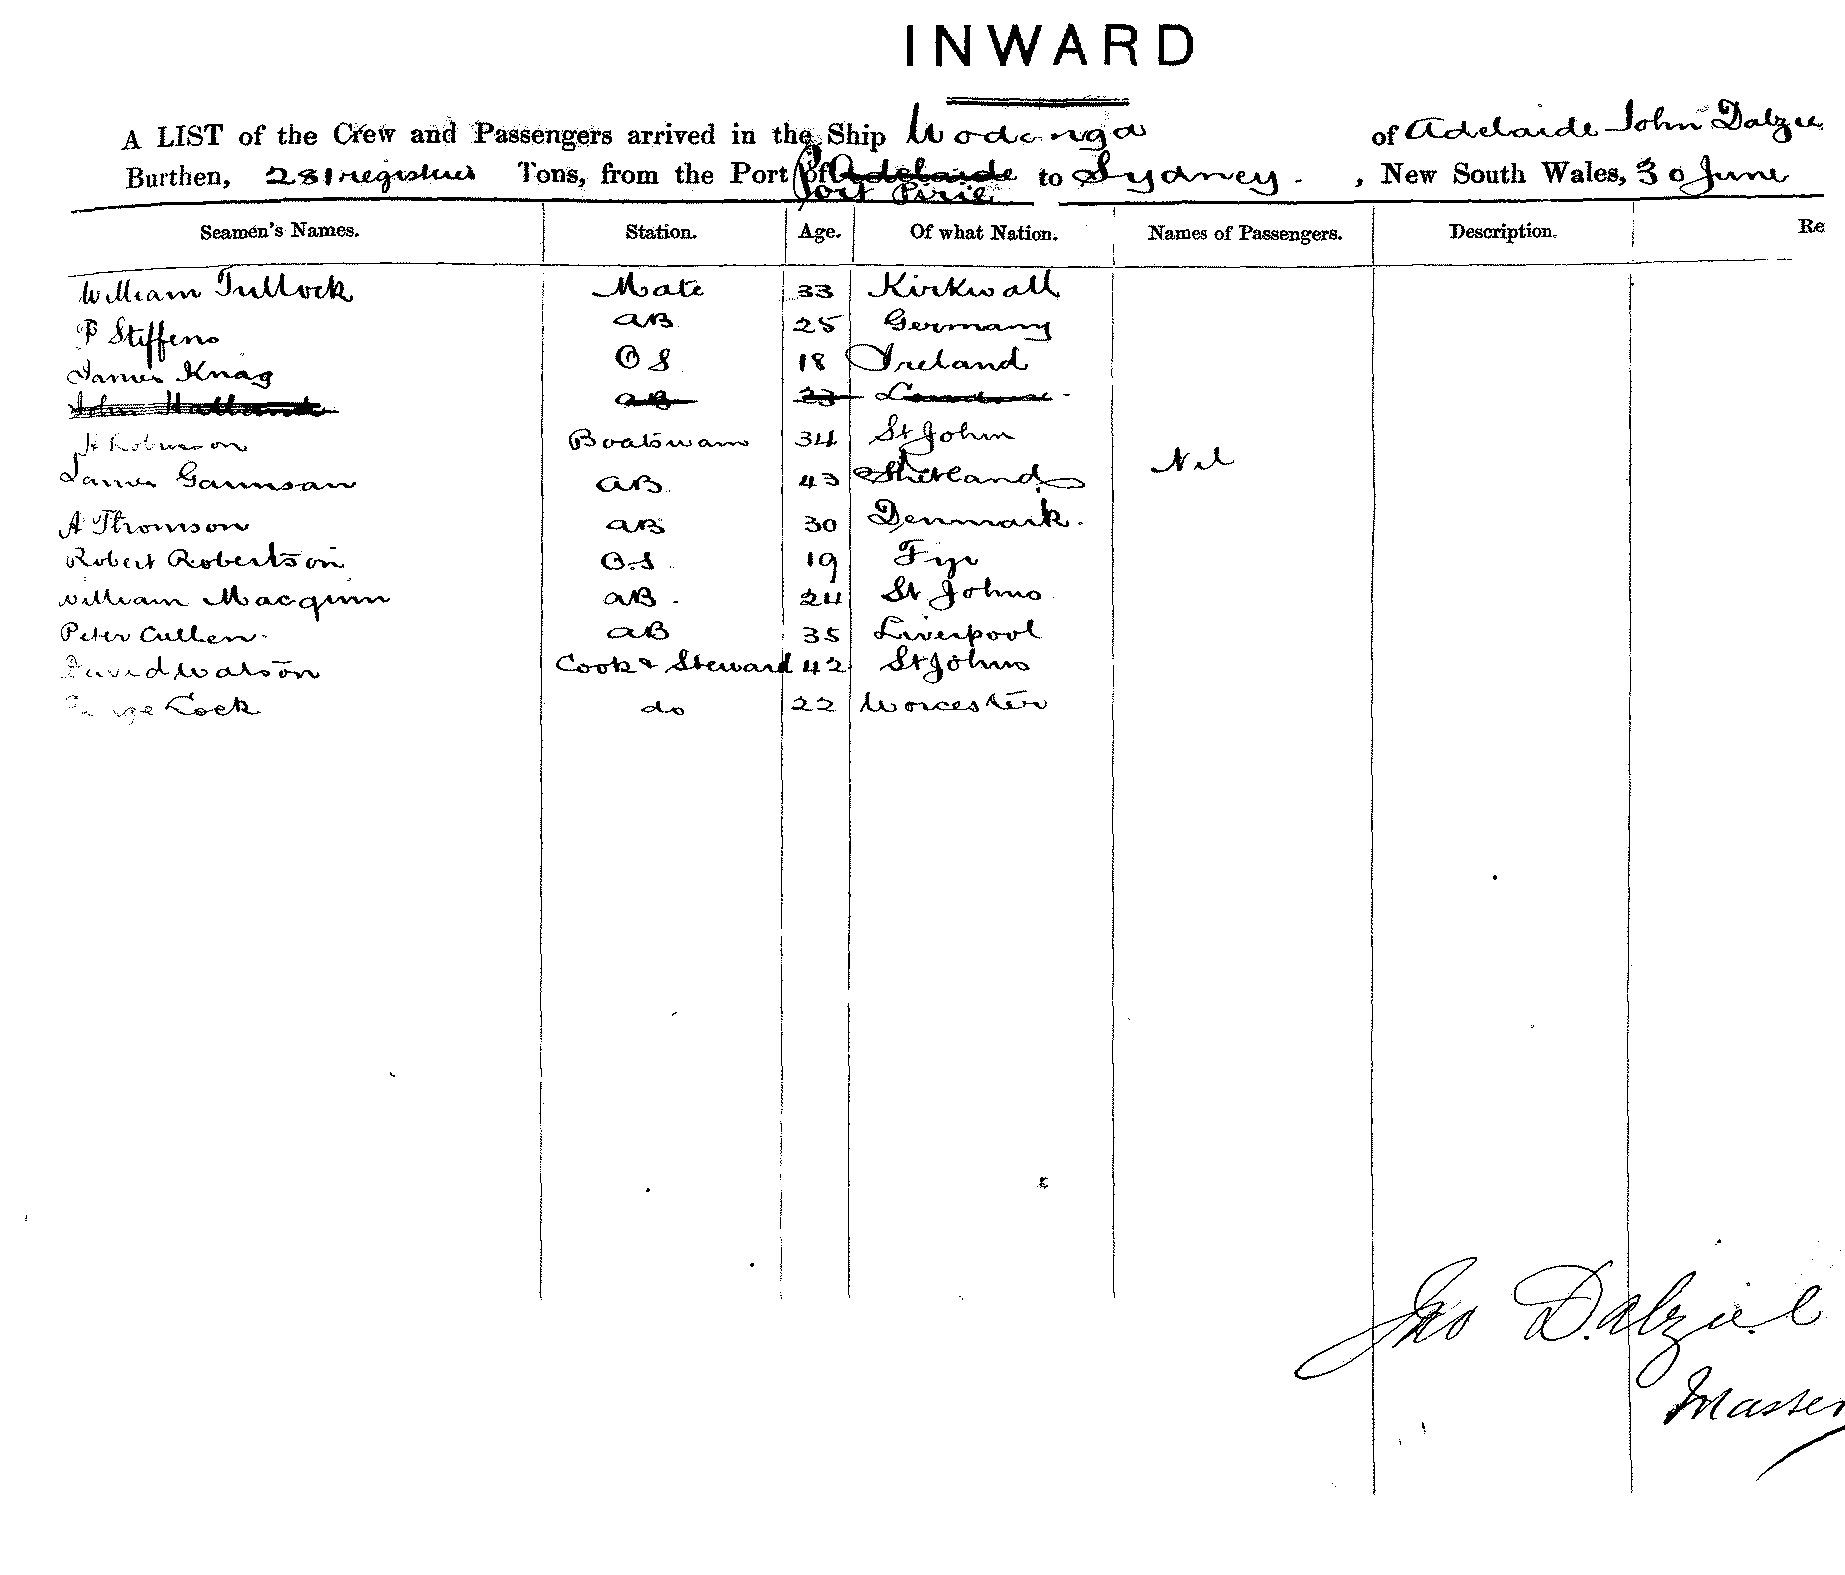 INWARD
A LIST of the Crew and Passengers arrived in the Ship Wodonga of Adelaide John Dalzie
Burthen, 281 register Tons, from the Port of Adelaide to Sydney. , New South Wales, 30 June
Port Pirie
Seamen's Names. Station. Age. Of what Nation. Names of Passengers. Description. Re
William Tullock Mate 33 Kirkwall
P Steffens AB 25 Germany
James Knag OS 18 Ireland
John AB 23
Robinson Boatswain 34 St John
Nil
James AB 43 Shetland
A Thomson AB 30 Denmark.
Robert Robertson O.S 19
William Macquinn AB. 24 St Johns
Peter Cullen. AB 35 Liverpool
David Watson Cook & Steward 42 St Johns
Cock do 22 Worcester
Jno Dalziel
Master